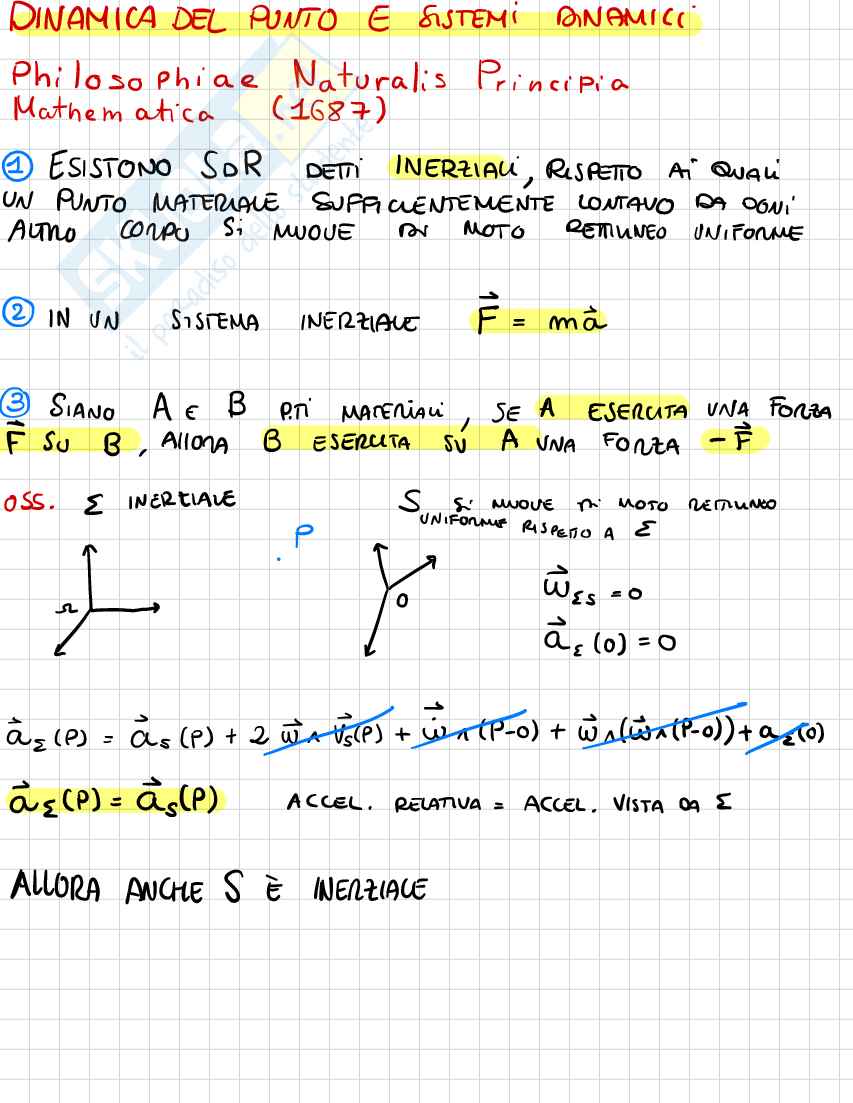 DINAMICA DEL PUNTO E SISTEMI DINAMICI
Philosophiae Naturalis Principia
Mathematica (1687)
① ESISTONO SDR DETTI INERZIALI, RISPETTO AI QUALI
UN PUNTO MATERIALE SUFFICIENTEMENTE LONTANO DA OGNI
ALTRO CORPO SI MUOVE DI MOTO RETTILINEO UNIFORME
② IN UN SISTEMA INERZIALE F⃗ = ma⃗
③ SIANO A E B PTI MATERIALI, SE A ESERCITA UNA FORZA
F⃗ SU B, ALLORA B ESERCITA SU A UNA FORZA -F⃗
OSS. Σ INERZIALE
S SI MUOVE DI MOTO RETTILINEO
UNIFORME RISPETTO A Σ
P
Ω
O
ω⃗_ΣS = 0
a⃗_Σ(O) = 0
a⃗_Σ(P) = a⃗_S(P) + 2 ω⃗ ∧ v⃗_S(P) + ω̇⃗ ∧ (P-O) + ω⃗ ∧ (ω⃗ ∧ (P-O)) + a_Σ(O)
a⃗_Σ(P) = a⃗_S(P) ACCEL. RELATIVA = ACCEL. VISTA DA Σ
ALLORA ANCHE S È INERZIALE
il paradiso dello studente